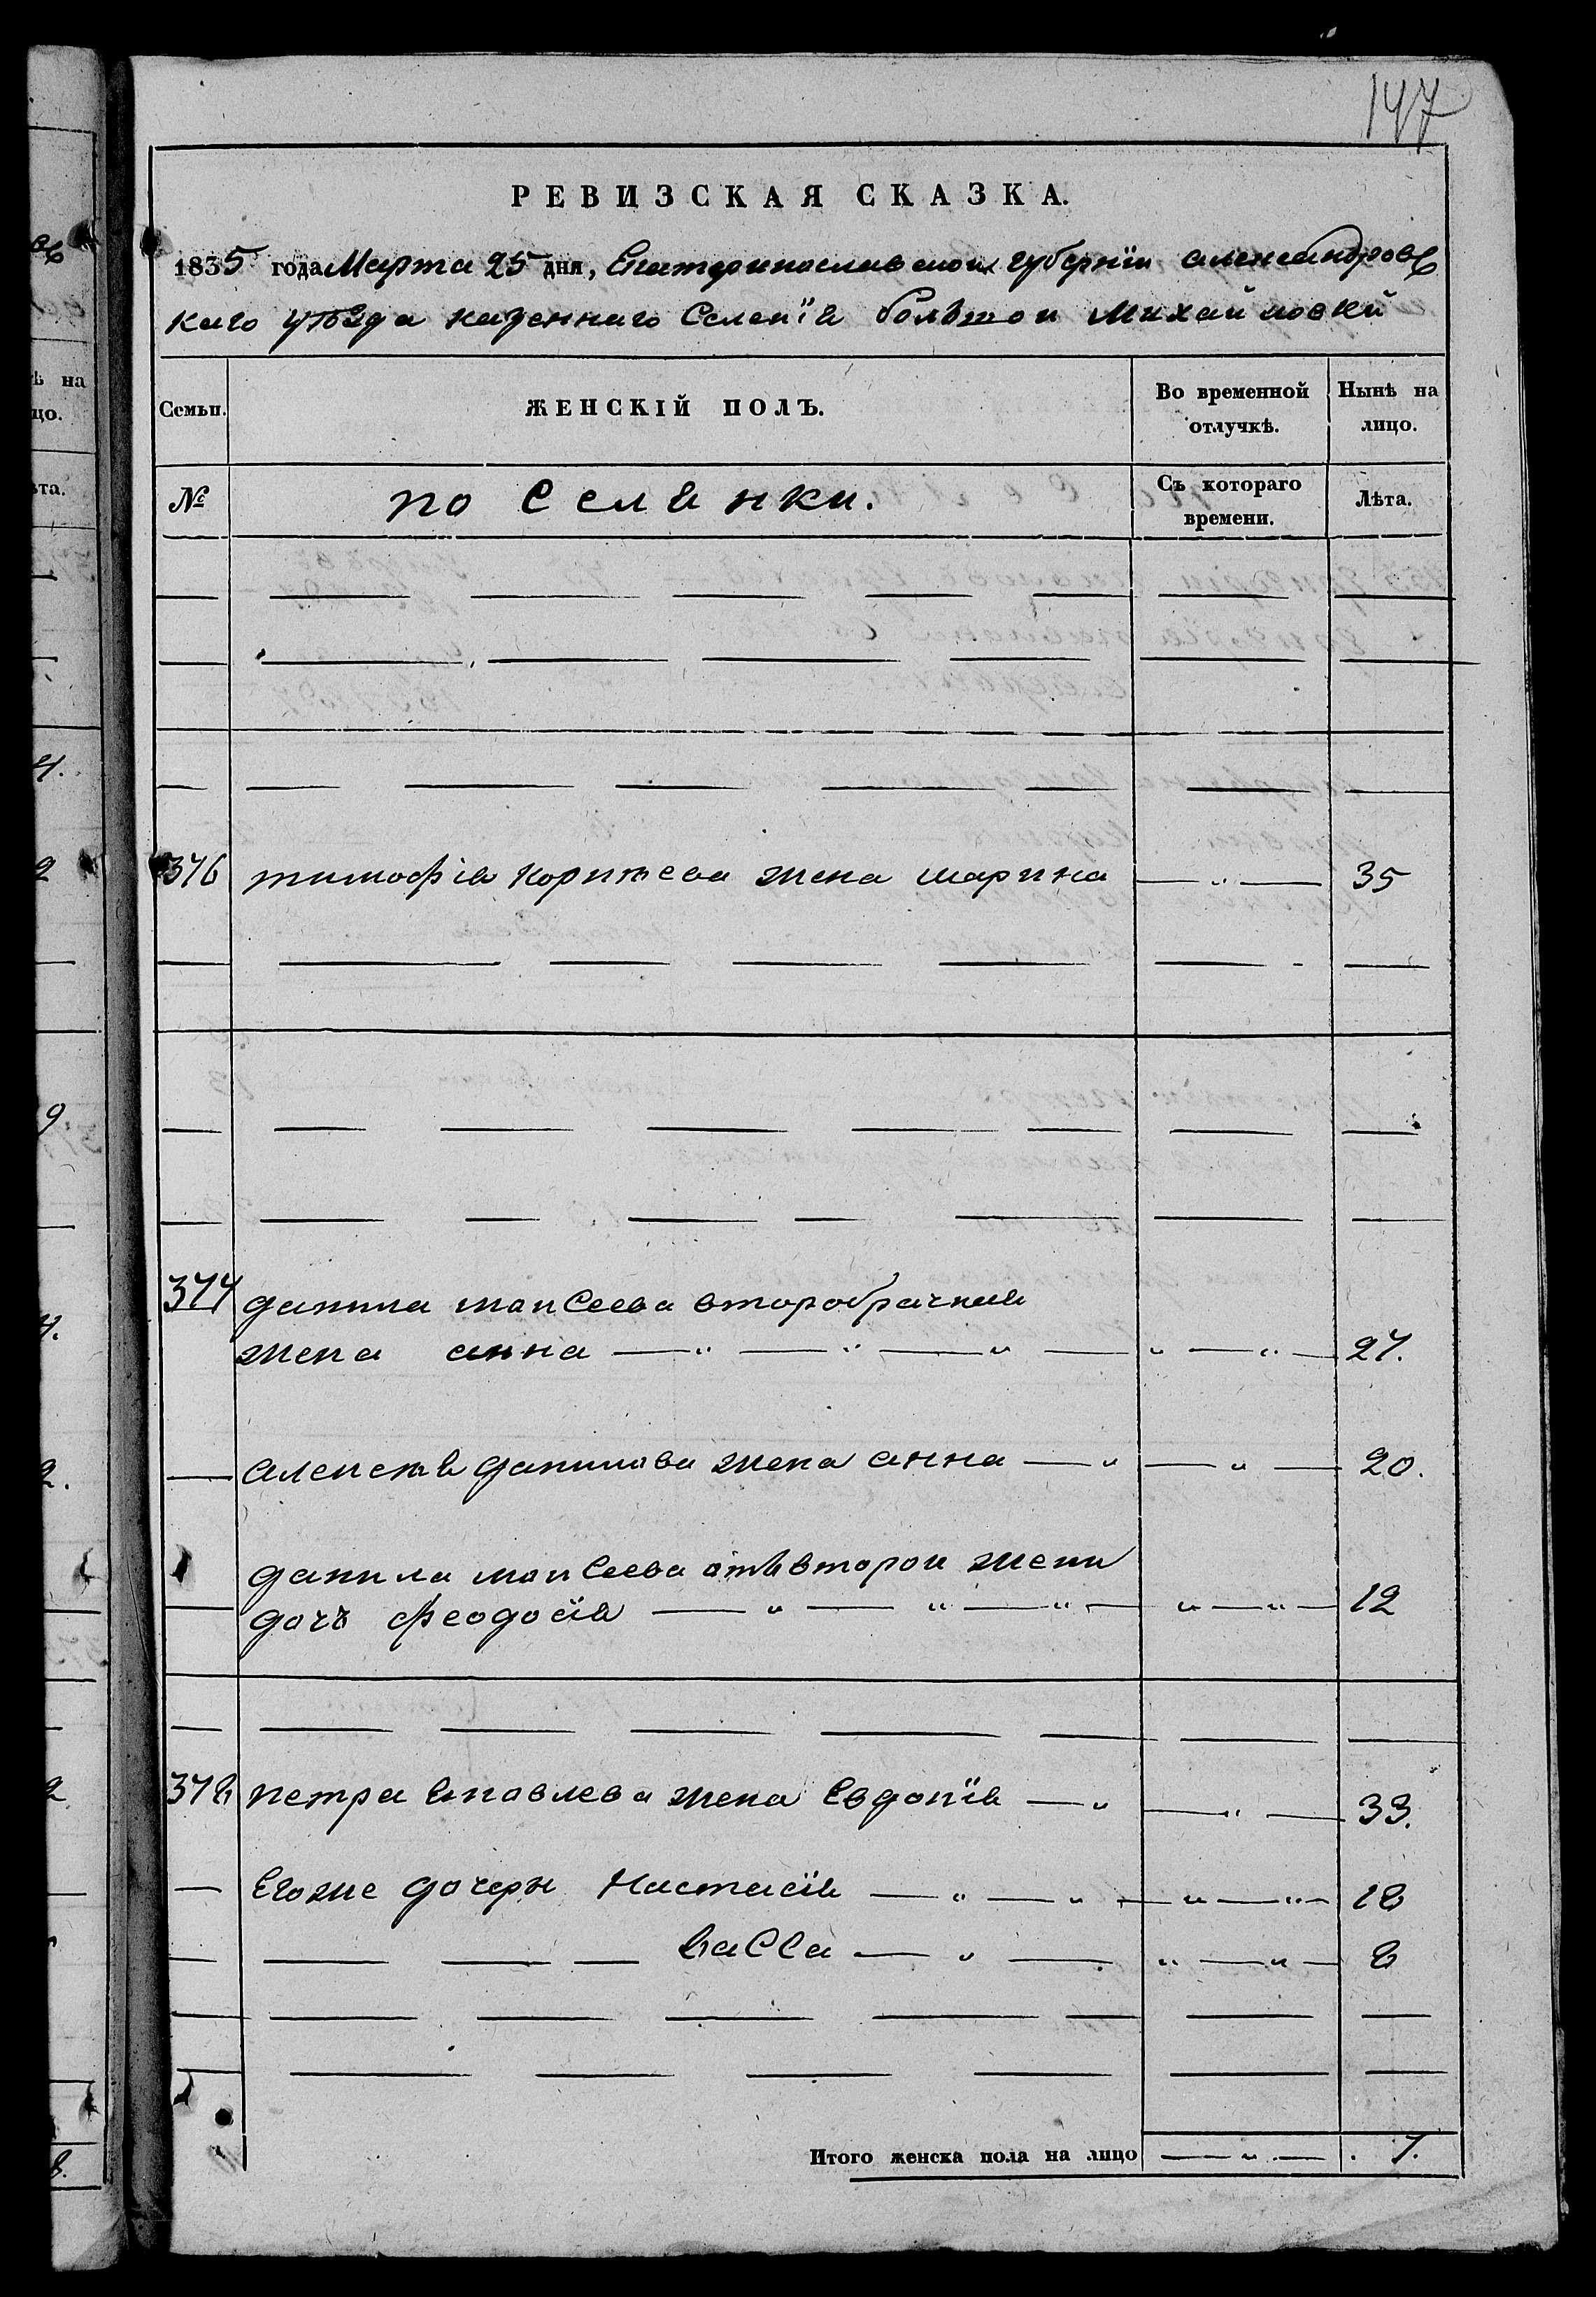 147
РЕВИЗСКАЯ СКАЗКА.
1835 года Марта 25 дня, Екатеринославской губернїи александровс
каго уѣзда казеннаго Селенїя большой Михайловки
Семьи. ЖЕНСКІЙ ПОЛЪ. Во временной отлучкѣ. Нынѣ на лицо.
№ поселянки. Съ котораго времени. Лѣта.
376 тимофѣя корнѣева жена марина — " — 35
377 данила моисеева второбрачная
жена анна — " — " — " — " — " — 27.
алексѣя данилова жена анна — " — " — 20.
данила моисеева отъ второй жени
дочъ феодосїя — " — " — " — " — " — 12
378 петра яковлева жена Евдокїя — " — " — 33.
Егоже дочери Настасїя — " — " — " — " — 18
васса — " — " — " — 8
Итого женска пола на лицо — " — 7.